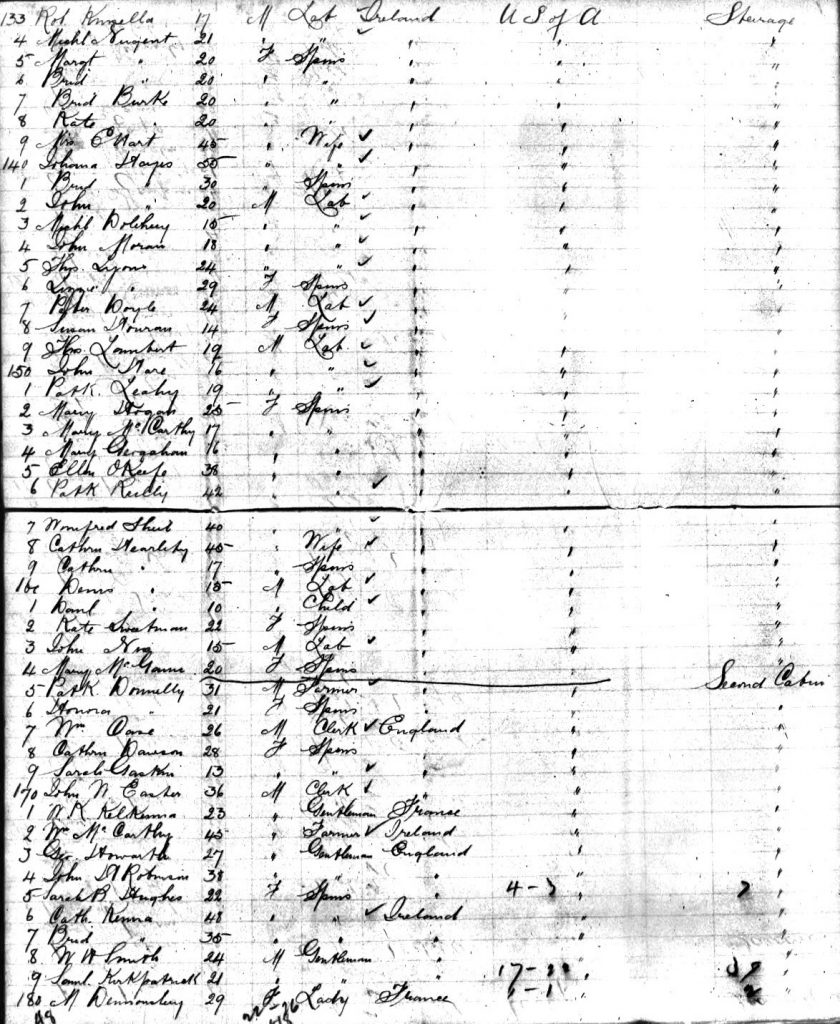 133 Rob. Kinsella 17 M Lab Ireland U S of A Steerage
4 Michl Nugent 21 " " " " "
5 Margt " 20 F Spins " " "
6 Brid " 20 " " " " "
7 Brid Burke 20 " " " " "
8 Kate " 20 " " " "
9 Mrs E Hart 45 " Wife " " "
140 Johana Hayes 55 " " " " "
1 Brid " 30 " Spins " " "
2 John " 20 M Lab " " "
3 Michl 15 " " " " "
4 John Moran 18 " " " " "
5 Thos. Lyons 24 " " " " "
6 Lizzie " 29 F Spins " " "
7 Peter Doyle 24 M Lab " " "
8 Susan 14 F Spins " " "
9 Thos. Lambert 19 M Lab " " "
150 John 16 " " " " "
1 Patk. Leahy 19 " " " " "
2 Mary Hogan 25 F Spins " " "
3 Mary McCarthy 17 " " " " "
4 Mary Geoghan 16 " " " " "
5 Ellen O'Keefe 38 " " " " "
6 Patk Reilly 42 " " " " "
7 Winifred 40 " " " " "
8 Cathrn 45 " Wife " " "
9 Cathrn " 17 " Spins " " "
160 Denis " 15 M Lab " " "
1 Danl " 10 " Child " " "
2 Kate Sweetman 22 F Spins " " "
3 John 15 M Lab " " "
4 Mary 20 F Spins " " "
5 Patk Donnelly 31 M Farmer " " Second Cabin
6 Honora " 21 F Spins " " "
7 Wm 26 M Clerk England " "
8 Cathrn Dawson 28 F Spins " " "
9 Sarah Gaskin 13 " " " " "
170 John N. Easter 36 M Clerk " " "
1 23 " Gentleman France " "
2 Wm McCarthy 45 " Farmer Ireland " "
3 Geo. Howarth 27 " Gentleman England " "
4 John Robinson 38 " " " " "
5 Sarah B. Hughes 22 F Spins " 4-
6 Cath. Kenna 48 " " Ireland " "
7 Brid " 35 " " " " "
8 W H Smith 24 M Gentleman " " "
9 Saml. Kirkpatrick 21 " " " 17-22 "
180 M 29 F Lady France " "
48